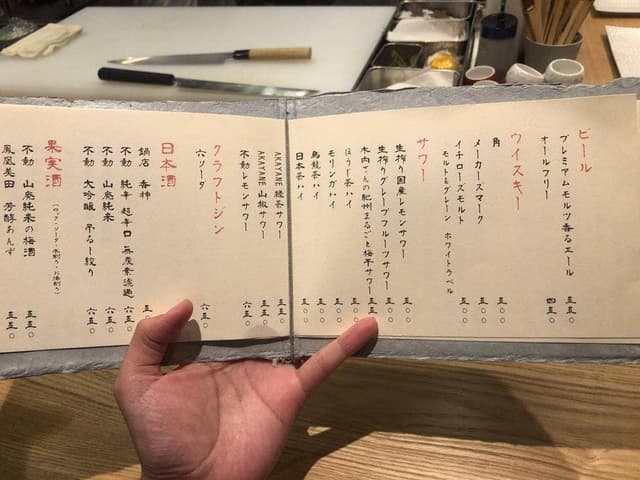 ビール
プレミアムモルツ香るエール 五五〇
オールフリー 四五〇
ウイスキー
角 五五〇
メーカーズマーク 五五〇
イチローズモルト 五五〇
モルト&グレーン ホワイトラベル
サワー
生搾り国産レモンサワー 五五〇
生搾りグレープフルーツサワー 五五〇
木内さんの紀州まるごと梅干サワー 五五〇
ほうじ茶ハイ 五五〇
モリンガハイ 五五〇
烏龍茶ハイ 五五〇
日本茶ハイ 五五〇
AKAYANE 緑茶サワー 五五〇
AKAYANE 山椒サワー 五五〇
不動レモンサワー 六五〇
クラフトジン
六ソーダ 六五〇
日本酒
鍋店 香神 五五
不動 純辛 超辛口 無炭素濾過 六五〇
不動 山廃純米 六五〇
不動 大吟醸 吊るし搾り 六五〇
果実酒
(ロック・ソーダ・水割り・お湯割り)
不動 山廃純米の梅酒 五五〇
鳳凰美田 芳醇あんず 五五〇